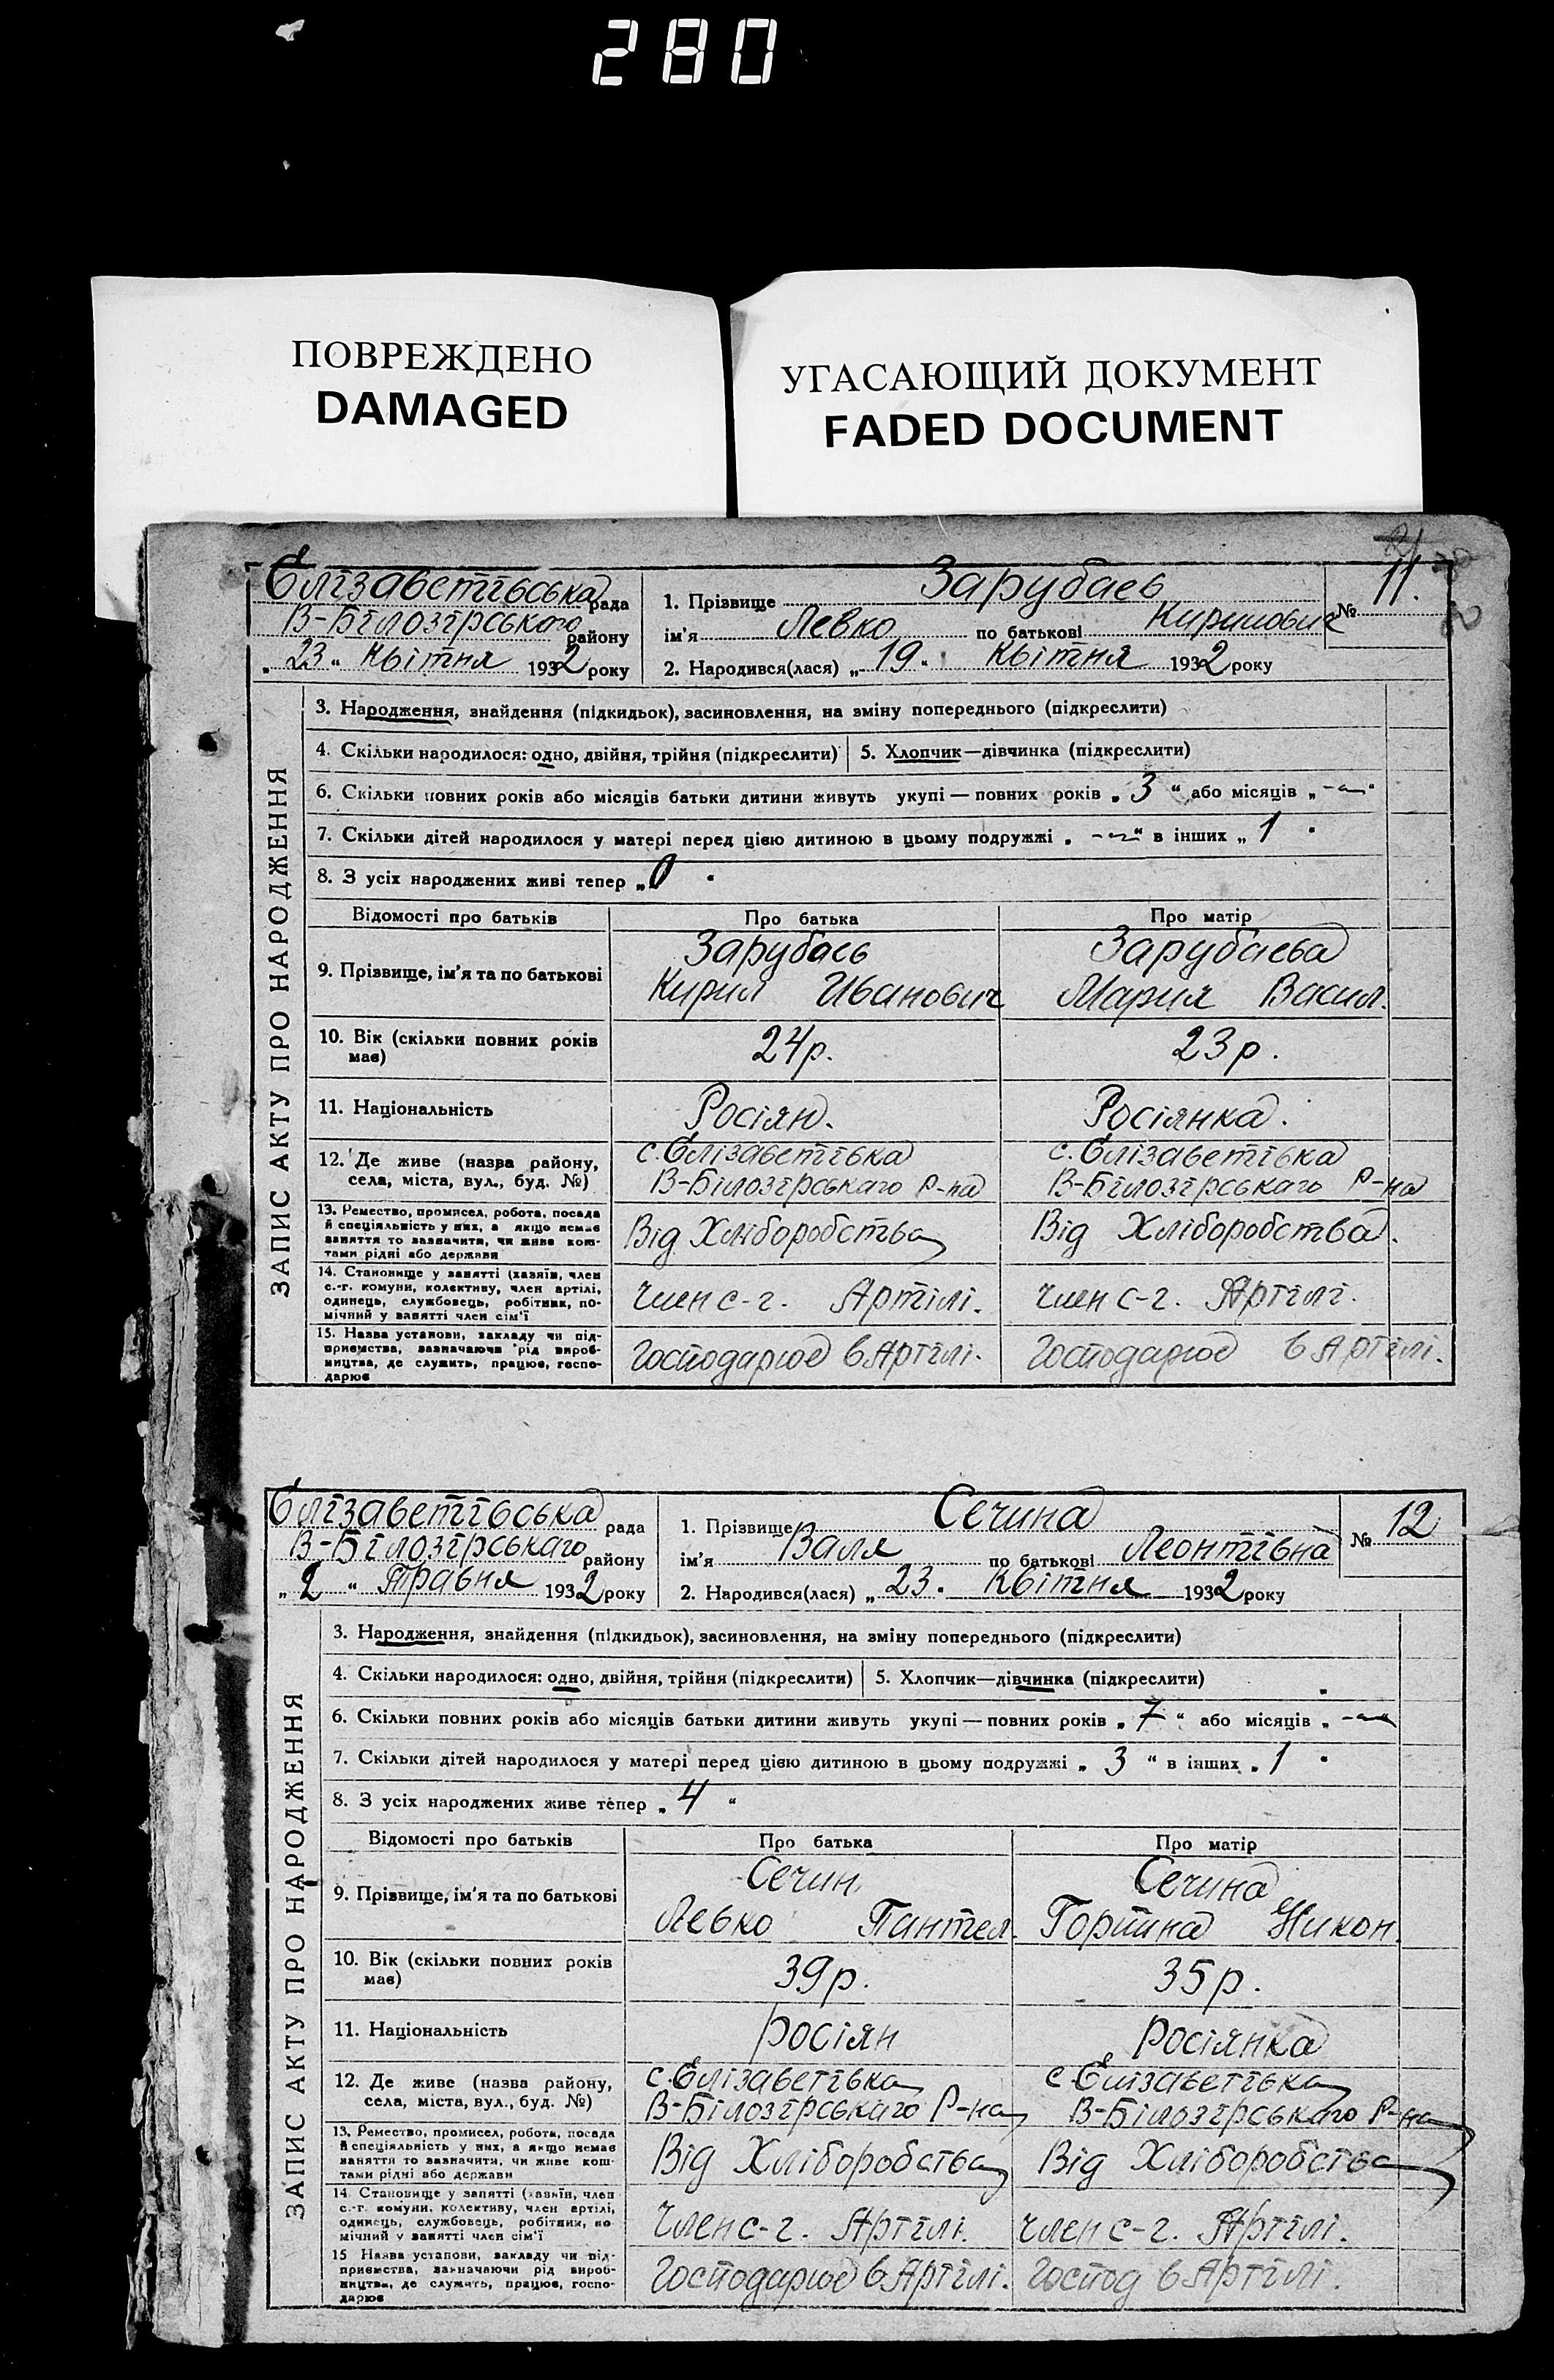 280
ПОВРЕЖДЕНО
DAMAGED
УГАСАЮЩИЙ ДОКУМЕНТ
FADED DOCUMENT
Єлізаветівська рада
В-Білозірського району
„23“ Квітня 1932 року
1. Прізвище Зарубаев
ім'я Левко по батькові Кирилович
2. Народився(лася) „19“ Квітня 1932 року
№ 11.
ЗАПИС АКТУ ПРО НАРОДЖЕННЯ
3. Народження, знайдення (підкидьок), засиновлення, на зміну попереднього (підкреслити)
4. Скільки народилося: одно, двійня, трійня (підкреслити) 5. Хлопчик—дівчинка (підкреслити)
6. Скільки повних років або місяців батьки дитини живуть укупі — повних років „3“ або місяців „—“
7. Скільки дітей народилося у матері перед цією дитиною в цьому подружжі „—“ в інших „1“
8. З усіх народжених живі тепер „0“
Відомості про батьків Про батька Про матір
9. Прізвище, ім'я та по батькові
Зарубаев
Кирил Иванович
Зарубаева
Мария Васил.
10. Вік (скільки повних років
має)
24р.
23р.
11. Національність
Росіян.
Росіянка.
12. Де живе (назва району,
села, міста, вул., буд. №)
с. Єлізаветівка
В-Білозірськаго Р-на
с. Єлізаветівка
В-Білозірськаго Р-на
13. Ремество, промисел, робота, посада
й спеціяльність у них, а якщо немає
заняття то зазначити, чи живе кош-
тами рідні або держави
Від Хліборобства
Від Хліборобства.
14. Становище у занятті (хазяїн, член
с.-г. комуни, колективу, член артілі,
одинець, службовець, робітник, по-
мічний у занятті член сім'ї
член с-г. Артілі.
член с-г. Артілі.
15. Назва установи, закладу чи під-
приємства, зазначаючи рід вироб-
ництва, де служить, працює, госпо-
дарює
Господарює в Артілі.
Господарює в Артілі.
Єлізаветівська рада
В-Білозірськаго району
„2“ Травня 1932 року
1. Прізвище Сечина
ім'я Валя по батькові Леонтівна
2. Народився(лася) „23. Квітня 1932 року
№ 12
ЗАПИС АКТУ ПРО НАРОДЖЕННЯ
3. Народження, знайдення (підкидьок), засиновлення, на зміну попереднього (підкреслити)
4. Скільки народилося: одно, двійня, трійня (підкреслити) 5. Хлопчик—дівчинка (підкреслити)
6. Скільки повних років або місяців батьки дитини живуть укупі — повних років „7“ або місяців „—“
7. Скільки дітей народилося у матері перед цією дитиною в цьому подружжі „3“ в інших „1“
8. З усіх народжених живе тепер „4“
Відомості про батьків Про батька Про матір
9. Прізвище, ім'я та по батькові
Сечин
Левко Пантел.
Сечина
Никон.
10. Вік (скільки повних років
має)
39р.
35р.
11. Національність
росіян
росіянка
12. Де живе (назва району,
села, міста, вул., буд. №)
с. Єлізаветівка
В-Білозірськаго Р-на
с. Єлізаветівка
В-Білозірськаго Р-на
13. Ремество, промисел, робота, посада
й спеціяльність у них, а якщо немає
заняття то зазначити, чи живе кош-
тами рідні або держави
Від Хліборобства
Від Хліборобства
14. Становище у занятті (хазяїн, член
с.-г. комуни, колективу, член артілі,
одинець, службовець, робітник, по-
мічний у занятті член сім'ї
Член с-г. Артілі.
член с-г. Артілі.
15 Назва установи, закладу чи під-
приємства, зазначаючи рід вироб-
ництва, де служить, працює, госпо-
дарює
Господарює в Артілі.
Господ в Артілі.